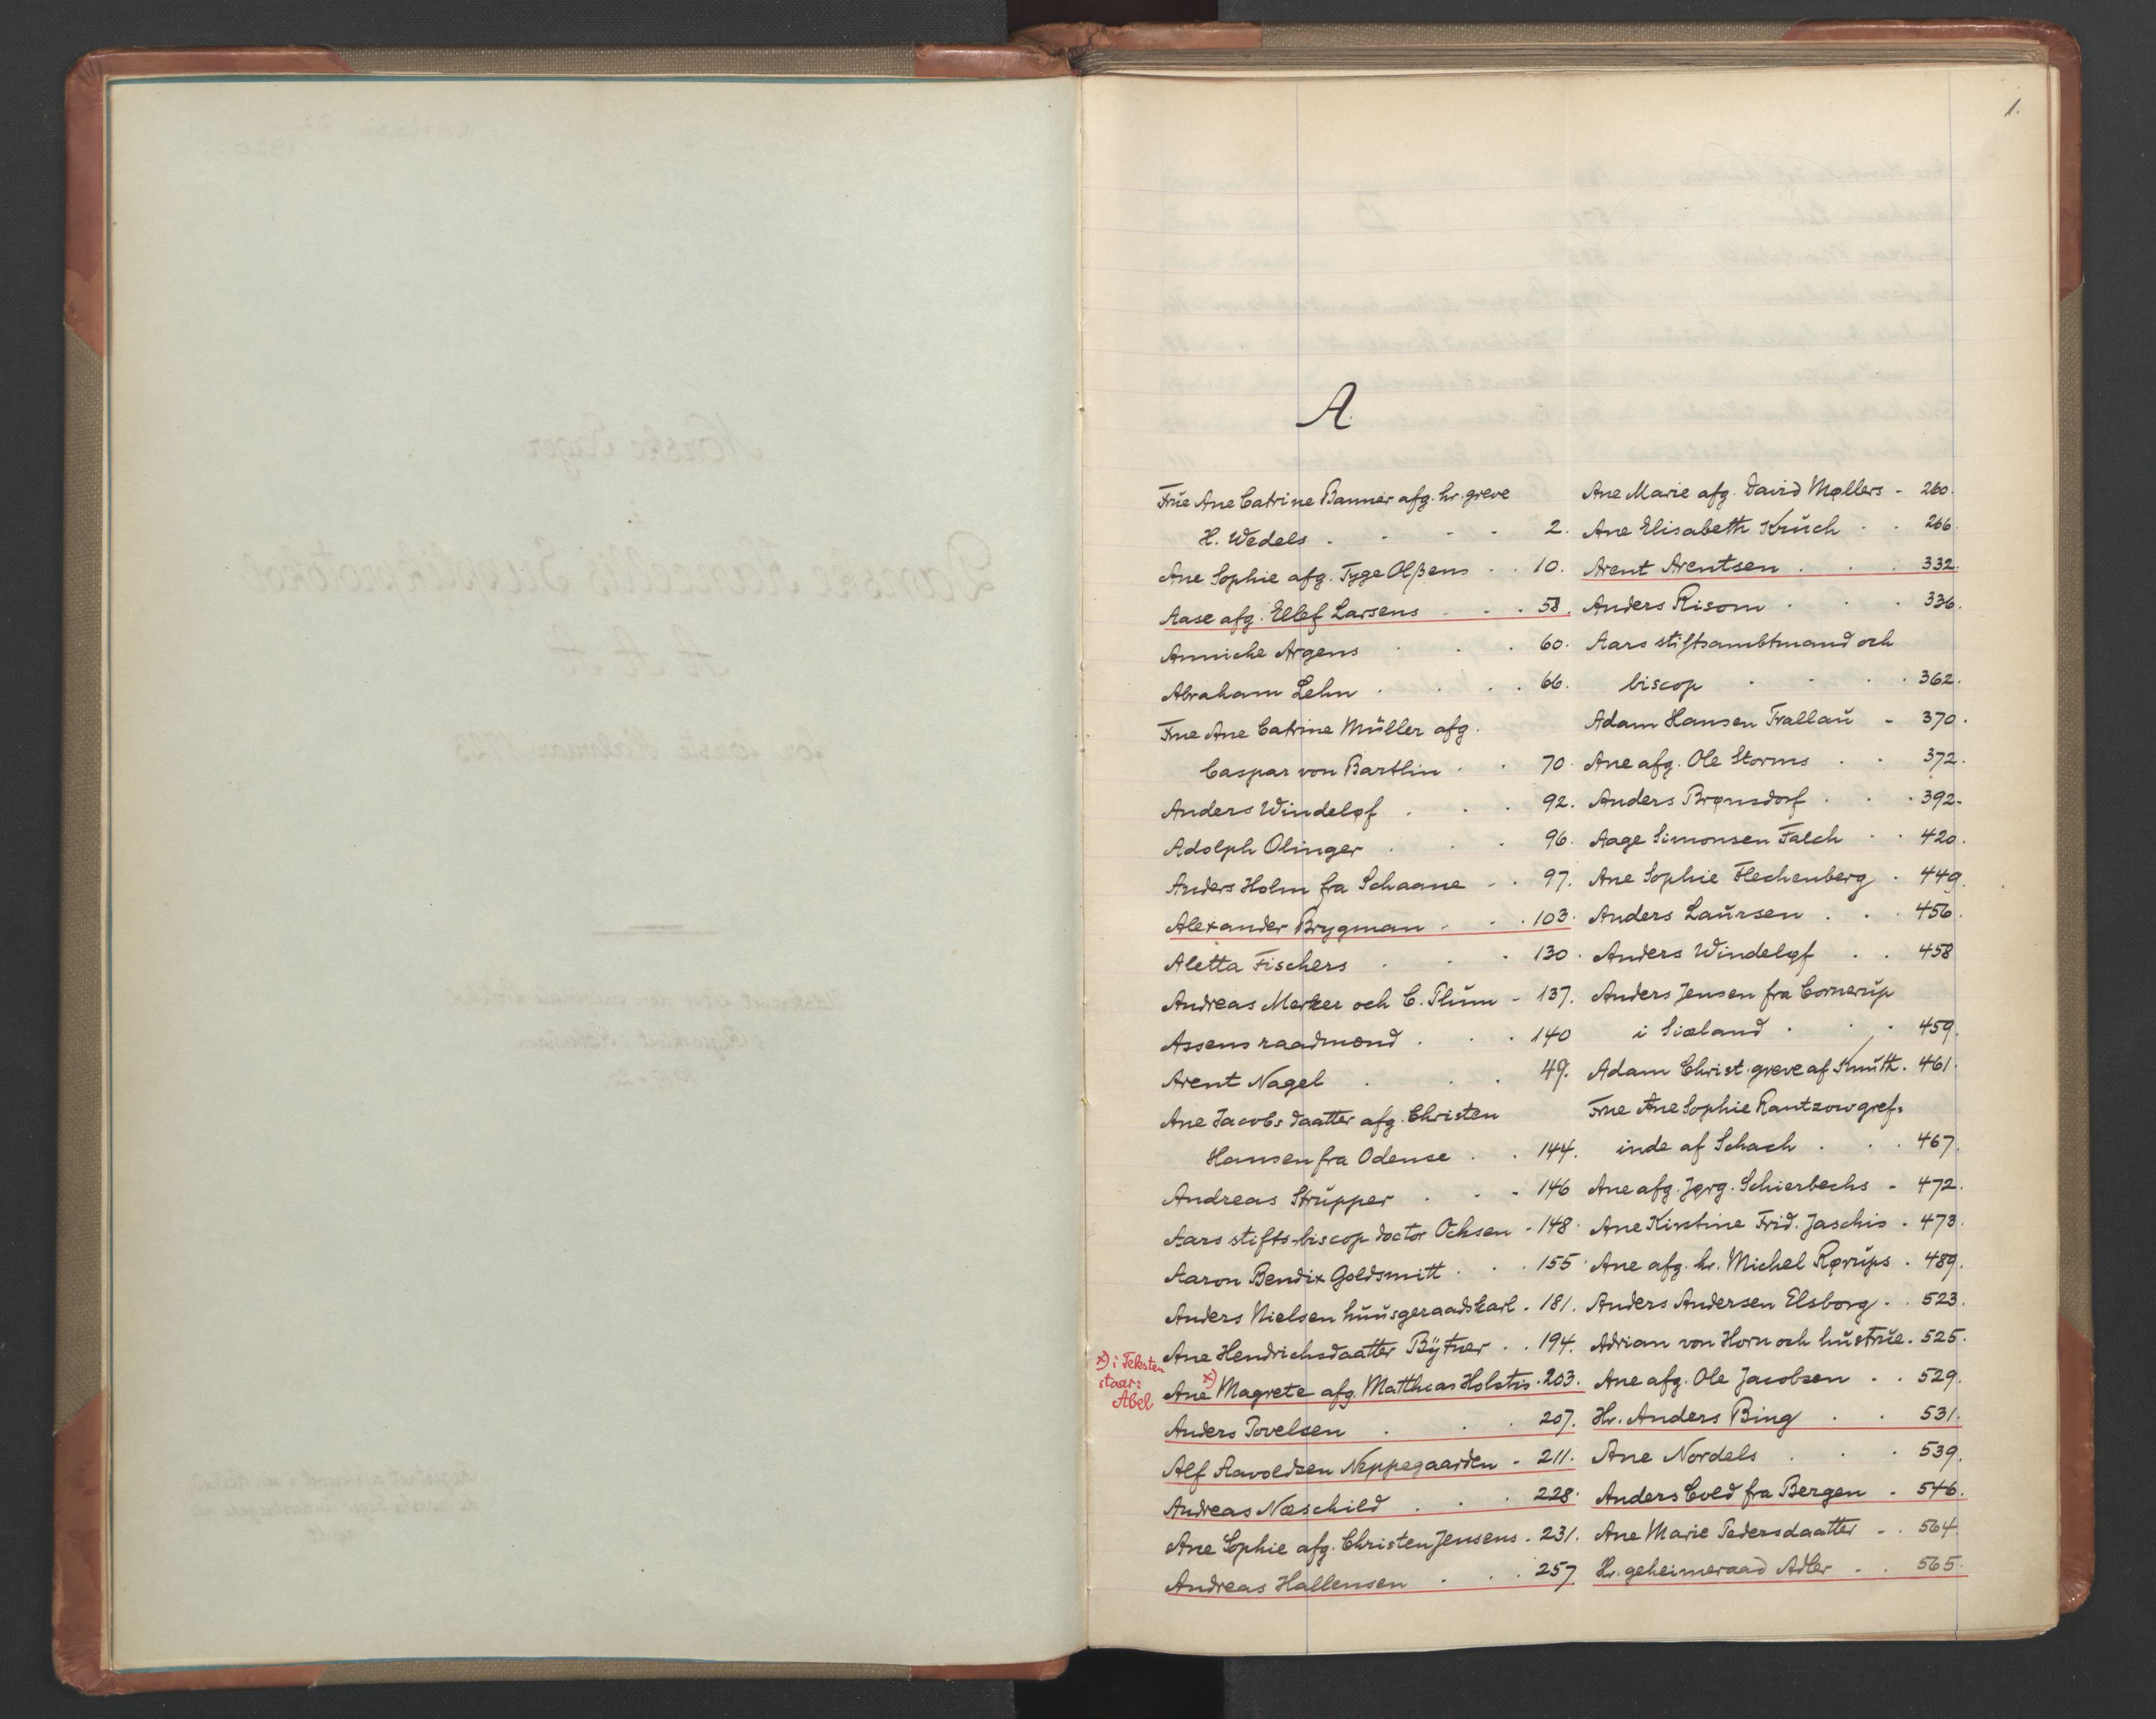 1.
A.
Frue Ane Catrine Banner afg. hr. greve
H. Wedels - - - - 2.
Ane Sophie afg. Tyge Olßens - . 10.
Aase afg. Ellef Larsens - - . 58.
Anniche Argens . . . 60.
Abraham Lehn . . . . 66.
Frue Ane Catrine Müller afg.
Caspar von Bartlin . . 70.
Anders Windeløf . . . 92.
Adolph Olinger . . . 96.
Anders Holm fra Schaane - . 97.
Alexander Brygman - . . 103.
Aletta Fischers . . . 130.
Andreas Merker och C. Plum - 137.
Assens raadmænd . . . 140
Arent Nagel . . . 49.
Ane Jacobsdaatter afg. Christen
Hansen fra Odense . . 144.
Andreas Strupper . . - 146
Aars stifts-biscop doctor Ochsen - 148.
Aaron Bendix Goldsmitt . . . 155
Anders Nielsen huusgeraadskarl . 181.
Ane Hendrichsdaatter Bÿtner . . 194.
x) i Teksten
staar:
Abel
Ane x) Magrete afg. Matthias Holsts . 203.
Anders Povelsen . . . 207.
Alf Aavoldsen Neppegaarden - 211.
Andreas Næschild . . . 228.
Ane Sophie afg. Christen Jensens . 231.
Andreas Hallensen . . . 257
Ane Marie afg. David Møllers - 260.
Ane Elisabeth Kruch . . 266.
Arent Arentsen . . . 332.
Anders Risom . . . 336.
Aars stiftsambtmand och
biscop . . . . 362.
Adam Hansen Trallau - 370.
Ane afg. Ole Storms . . 372.
Anders Brønsdorf . . . 392.
Aage Simonsen Falch . . 420.
Ane Sophie Flechenberg . 449.
Anders Laursen . . . 456.
Anders Windeløf . . 458
Anders Jensen fra Cornerup
i Siæland . . . 459.
Adam Christ. greve af Knuth . 461.
Frue Ane Sophie Rantzow gref=
inde af Schach . . . 467.
Ane afg. Jørg. Schierbechs - 472.
Ane Kirstine Frid. Jaschis . 473.
Ane afg. hr. Michel Rørups . 489.
Anders Andersen Elsborg . . 523.
Adrian von Horn och hustrue . 525.
Ane afg. Ole Jacobsen . . 529.
Hr. Anders Bing . . 531.
Ane Nordels . . . 539.
Anders Cold fra Bergen . 546.
Ane Marie Pedersdaatter - . 564.
Hr. geheimeraad Adler - . 565.